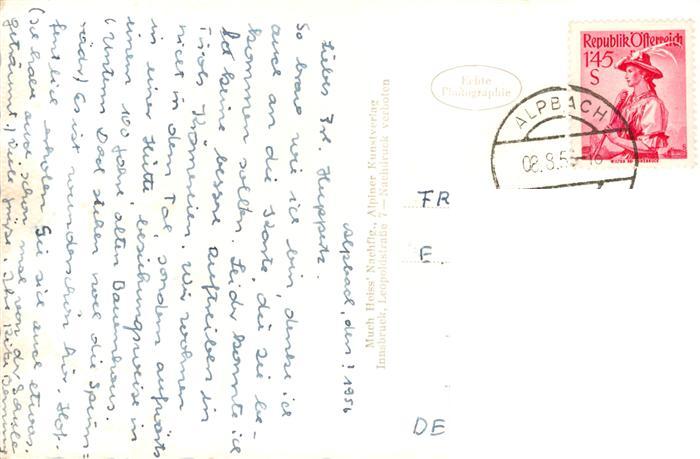 Alpbach, den ! 1956
Liebes Frl. Huppertz.
So brav wie ich bin, denke ich
auch an die Karte, die Sie be-
kommen sollen. Leider konnte ich
keine bessere auftreiben in
Tirols Krämereien. Wir wohnen
nicht in dem Tal, sondern aufwärts
in einer Hütte, beziehungsweise in
einem 100 Jahre alten Bauernhaus.
(Unterm Dach stehen noch die Spinn=
räder) Es ist wunderschön hier. Hof-
fentlich erholen Sie sich auch etwas.
(Ich habe auch schon mal von der Schule
geträumt.) Viele Grüße. Ihre
Much Heiss' Nachflg., Alpiner Kunstverlag
Innsbruck, Leopoldstraße 7 — Nachdruck verboten
Echte
Photographie
Republik Österreich
1'45
S
ALPBACH
08.8.56-16
FR
E
DE